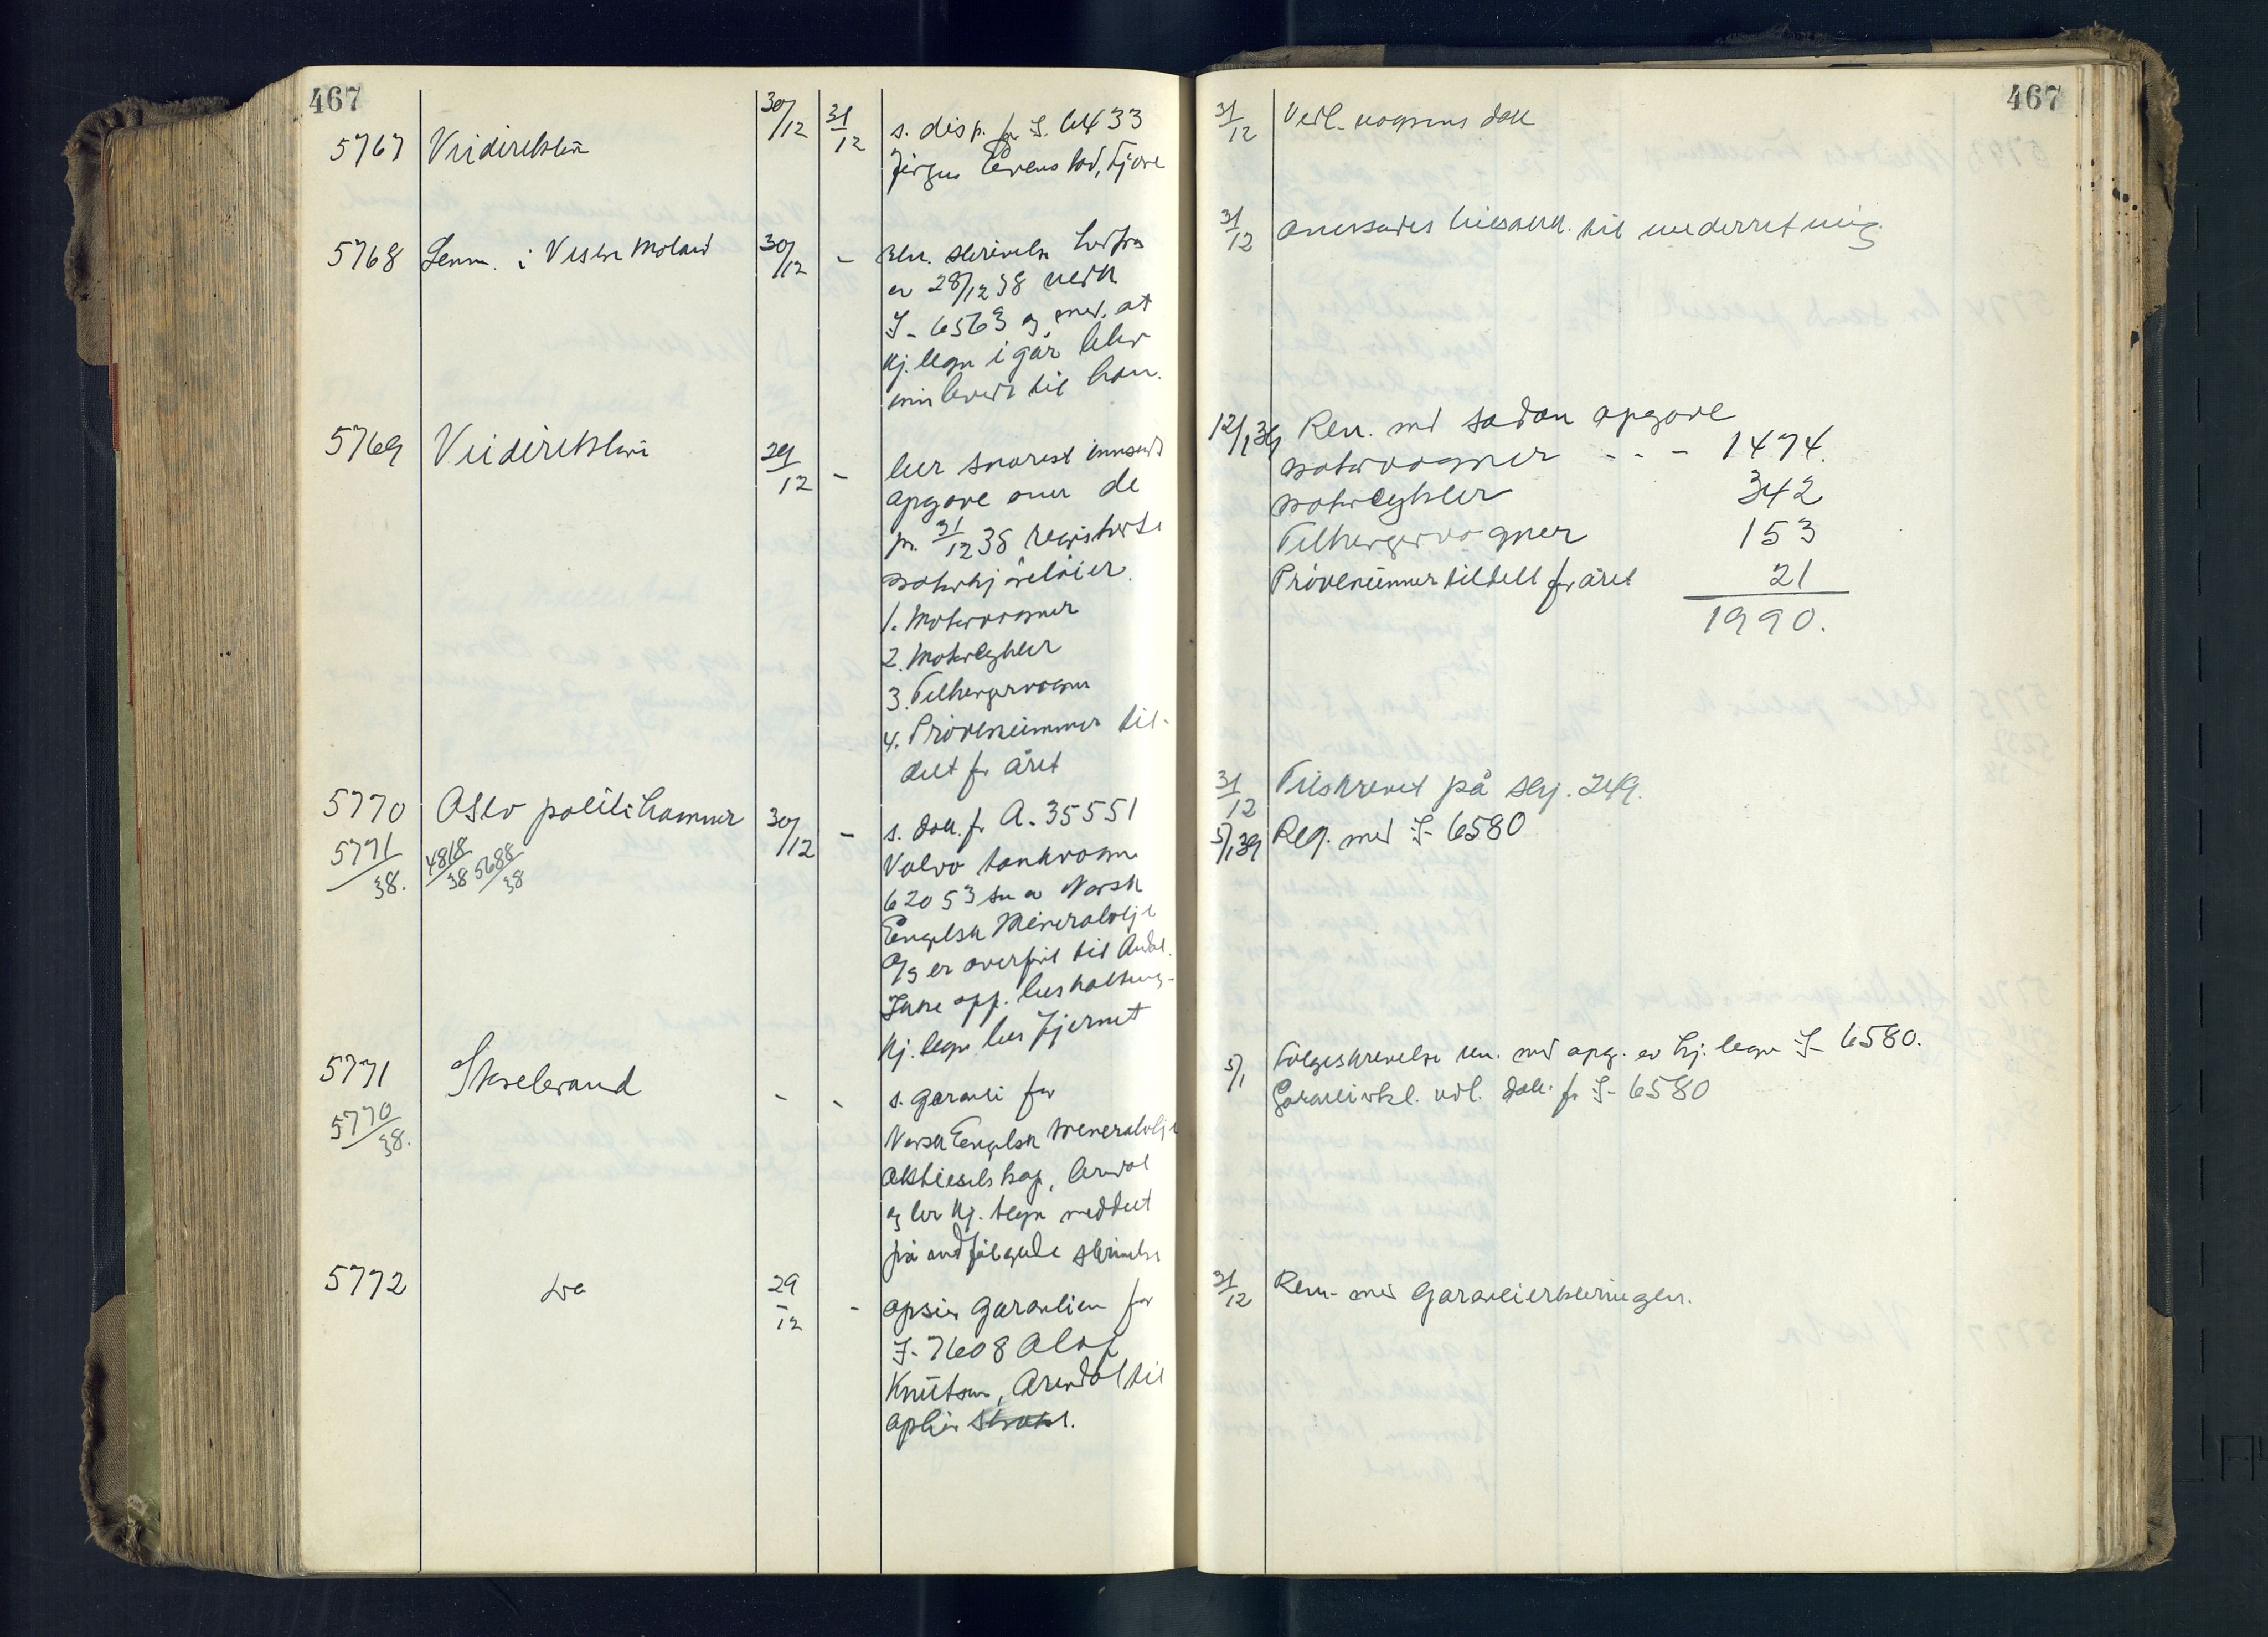 467
5767 Veidirektør 30/12 31/12 s. disp. for I. 6433
Jørgen Evenstad, Fjære
5768 Lensm. i Vestre Moland 30/12 - Ren. skrivelse herfra
av 28/12 38 vedk
I- 6563 og med. at
kj. tegn i går blev
innlevert til ham.
5769 Veidirektøren 29/12 - ber snarest innsendt
opgave over de
pr. 31/12 38 registrerte
motorkjøretøier.
1. Motorvogner
2. Motorcykler
3. Tilhengervogner
4. Prøvenummer til-
delt for året
5770 Oslo politikammer 30/12 - s. dok. for A. 35551
5771/38. 4818/38 5688/38 Volvo tankvogn
62053 som av Norsk
Engelsk Mineralolje
A/S er overført til Arendal.
Ikke opp. beskatning.
Kj. tegn bes fjernet
5771 Storebrand - - s. garanti for
5770/38. Norsk Engelsk Mineralolje
Aktieselskap, Arendal
og ber kj. tegn meddelt
på medfølgende skrivelse
5772 do 29/12 - opsier garantien for
I- 7608 Olaf
Knutsen, Arendal til
ophør straks.
467
31/12 Vedl. vognens dok
31/12 Oversendes til underretning
12/1 39 Ren. med sådan opgave
Motorvogner - - - 1474.
Motorcykler 342
Tilhengervogner 153
Prøvenummer tildelt for året 21
1990.
31/12 Tilskrevet på skj. 249.
5/1 39 Reg. med I- 6580
5/1 Følgeskrivelse ren. med opg. av kj. tegn I- 6580.
Garantierkl. vdl. dok. for I- 6580
31/12 Ren. med garantierkleringen.